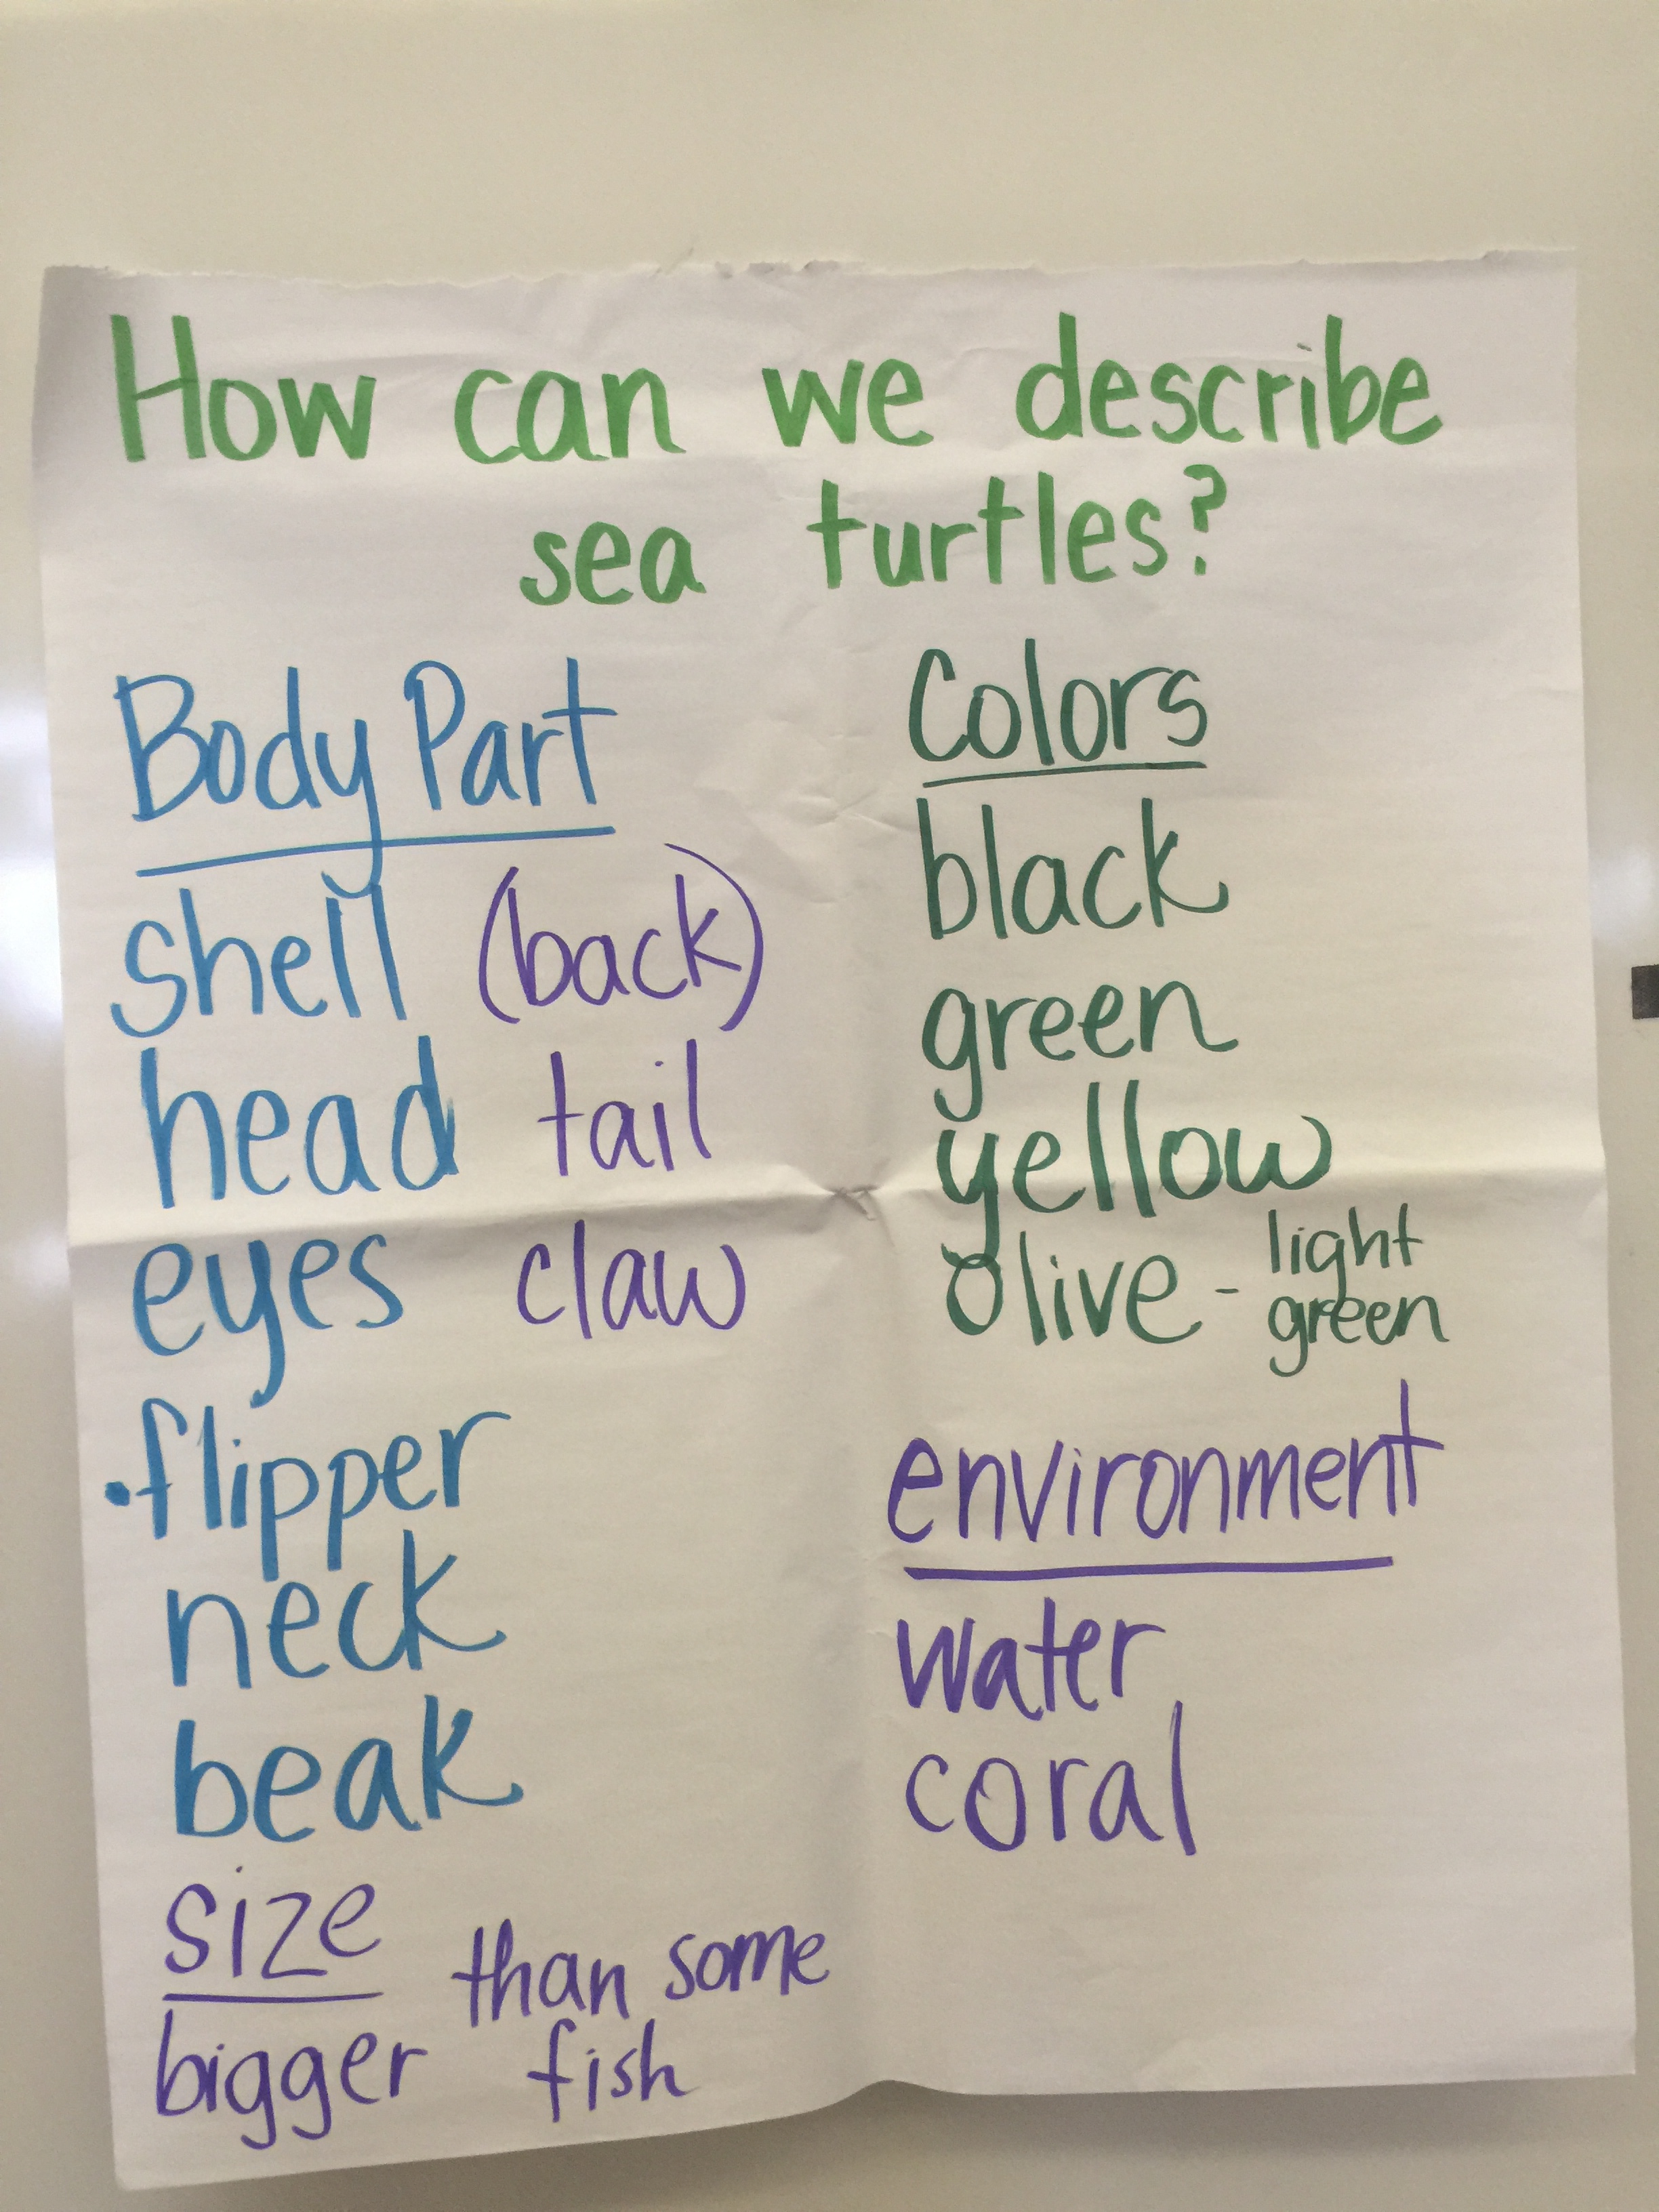 How can we describe
sea turtles?
Body Part
shell (back)
head tail
eyes claw
•flipper
neck
beak
size
bigger than some
fish
Colors
black
green
yellow
olive - light
green
environment
water
coral